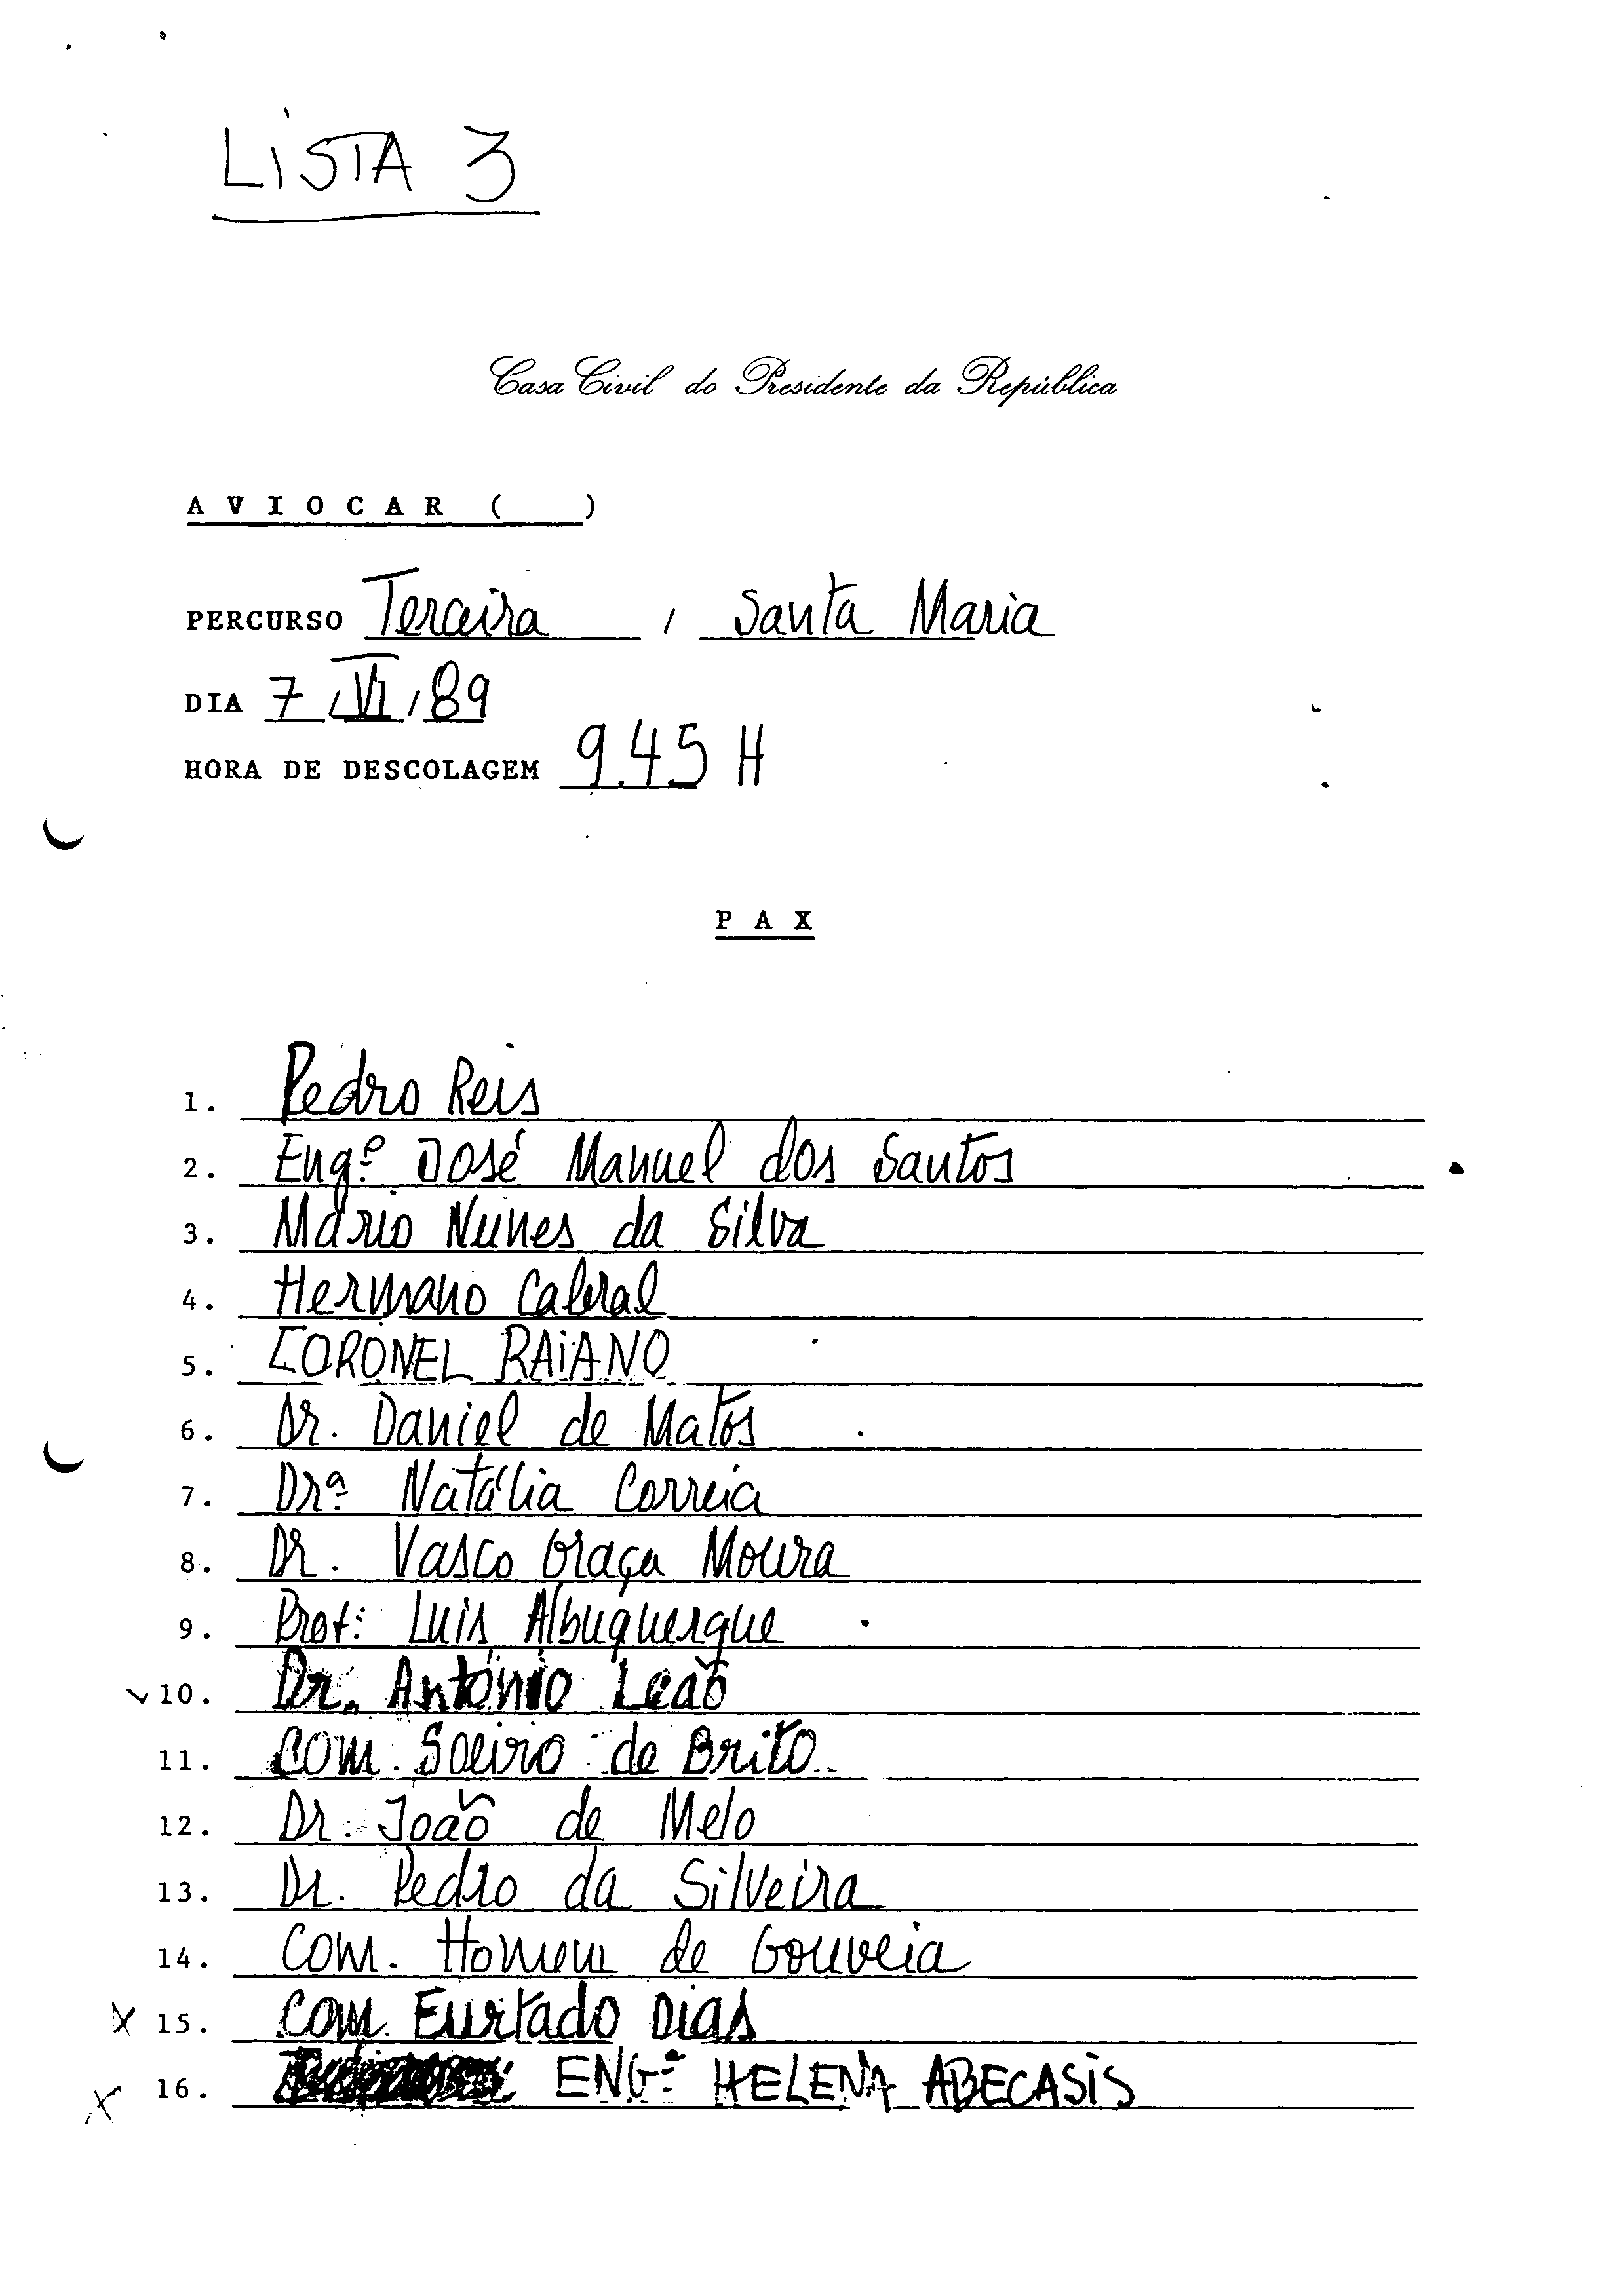 LISTA 3
Casa Civil do Presidente da República
AVIOCAR ( )
PERCURSO Terceira / Santa Maria
DIA 7 / VI / 89
HORA DE DESCOLAGEM 9.45 H
PAX
1. Pedro Reis
2. Engº José Manuel dos Santos
3. Mário Nunes da Silva
4. Hermano Cabral
5. CORONEL RAIANO
6. Dr. Daniel de Matos
7. Drª Natália Correia
8. Dr. Vasco Graça Moura
9. Prof. Luis Albuquerque
10. Dr. António Leão
11. Com. Soeiro de Brito
12. Dr. João de Melo
13. Dr. Pedro da Silveira
14. Com. Homem de Gouveia
X 15. Com. Furtado Dias
X 16. ENGª HELENA ABECASIS